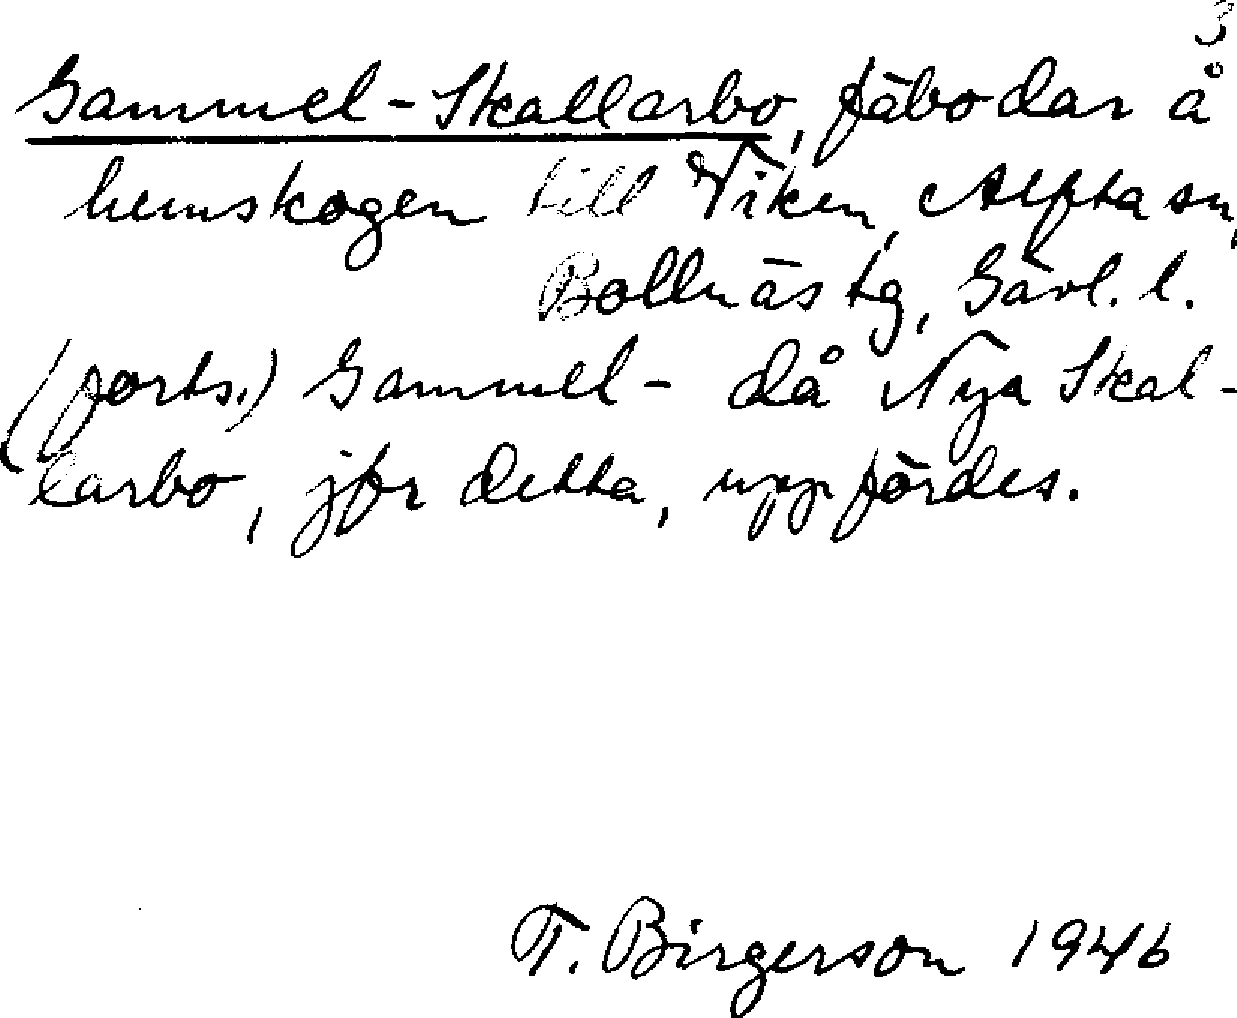 3
Gammel-Skallarbo, fäbodar å
hemskogen till Viken, Alfta sn,
Bollnäs tg, Gävl. l.
(forts.) Gammel- då Nya Skal-
larbo, jfr detta, uppfördes.
T. Birgerson 1946